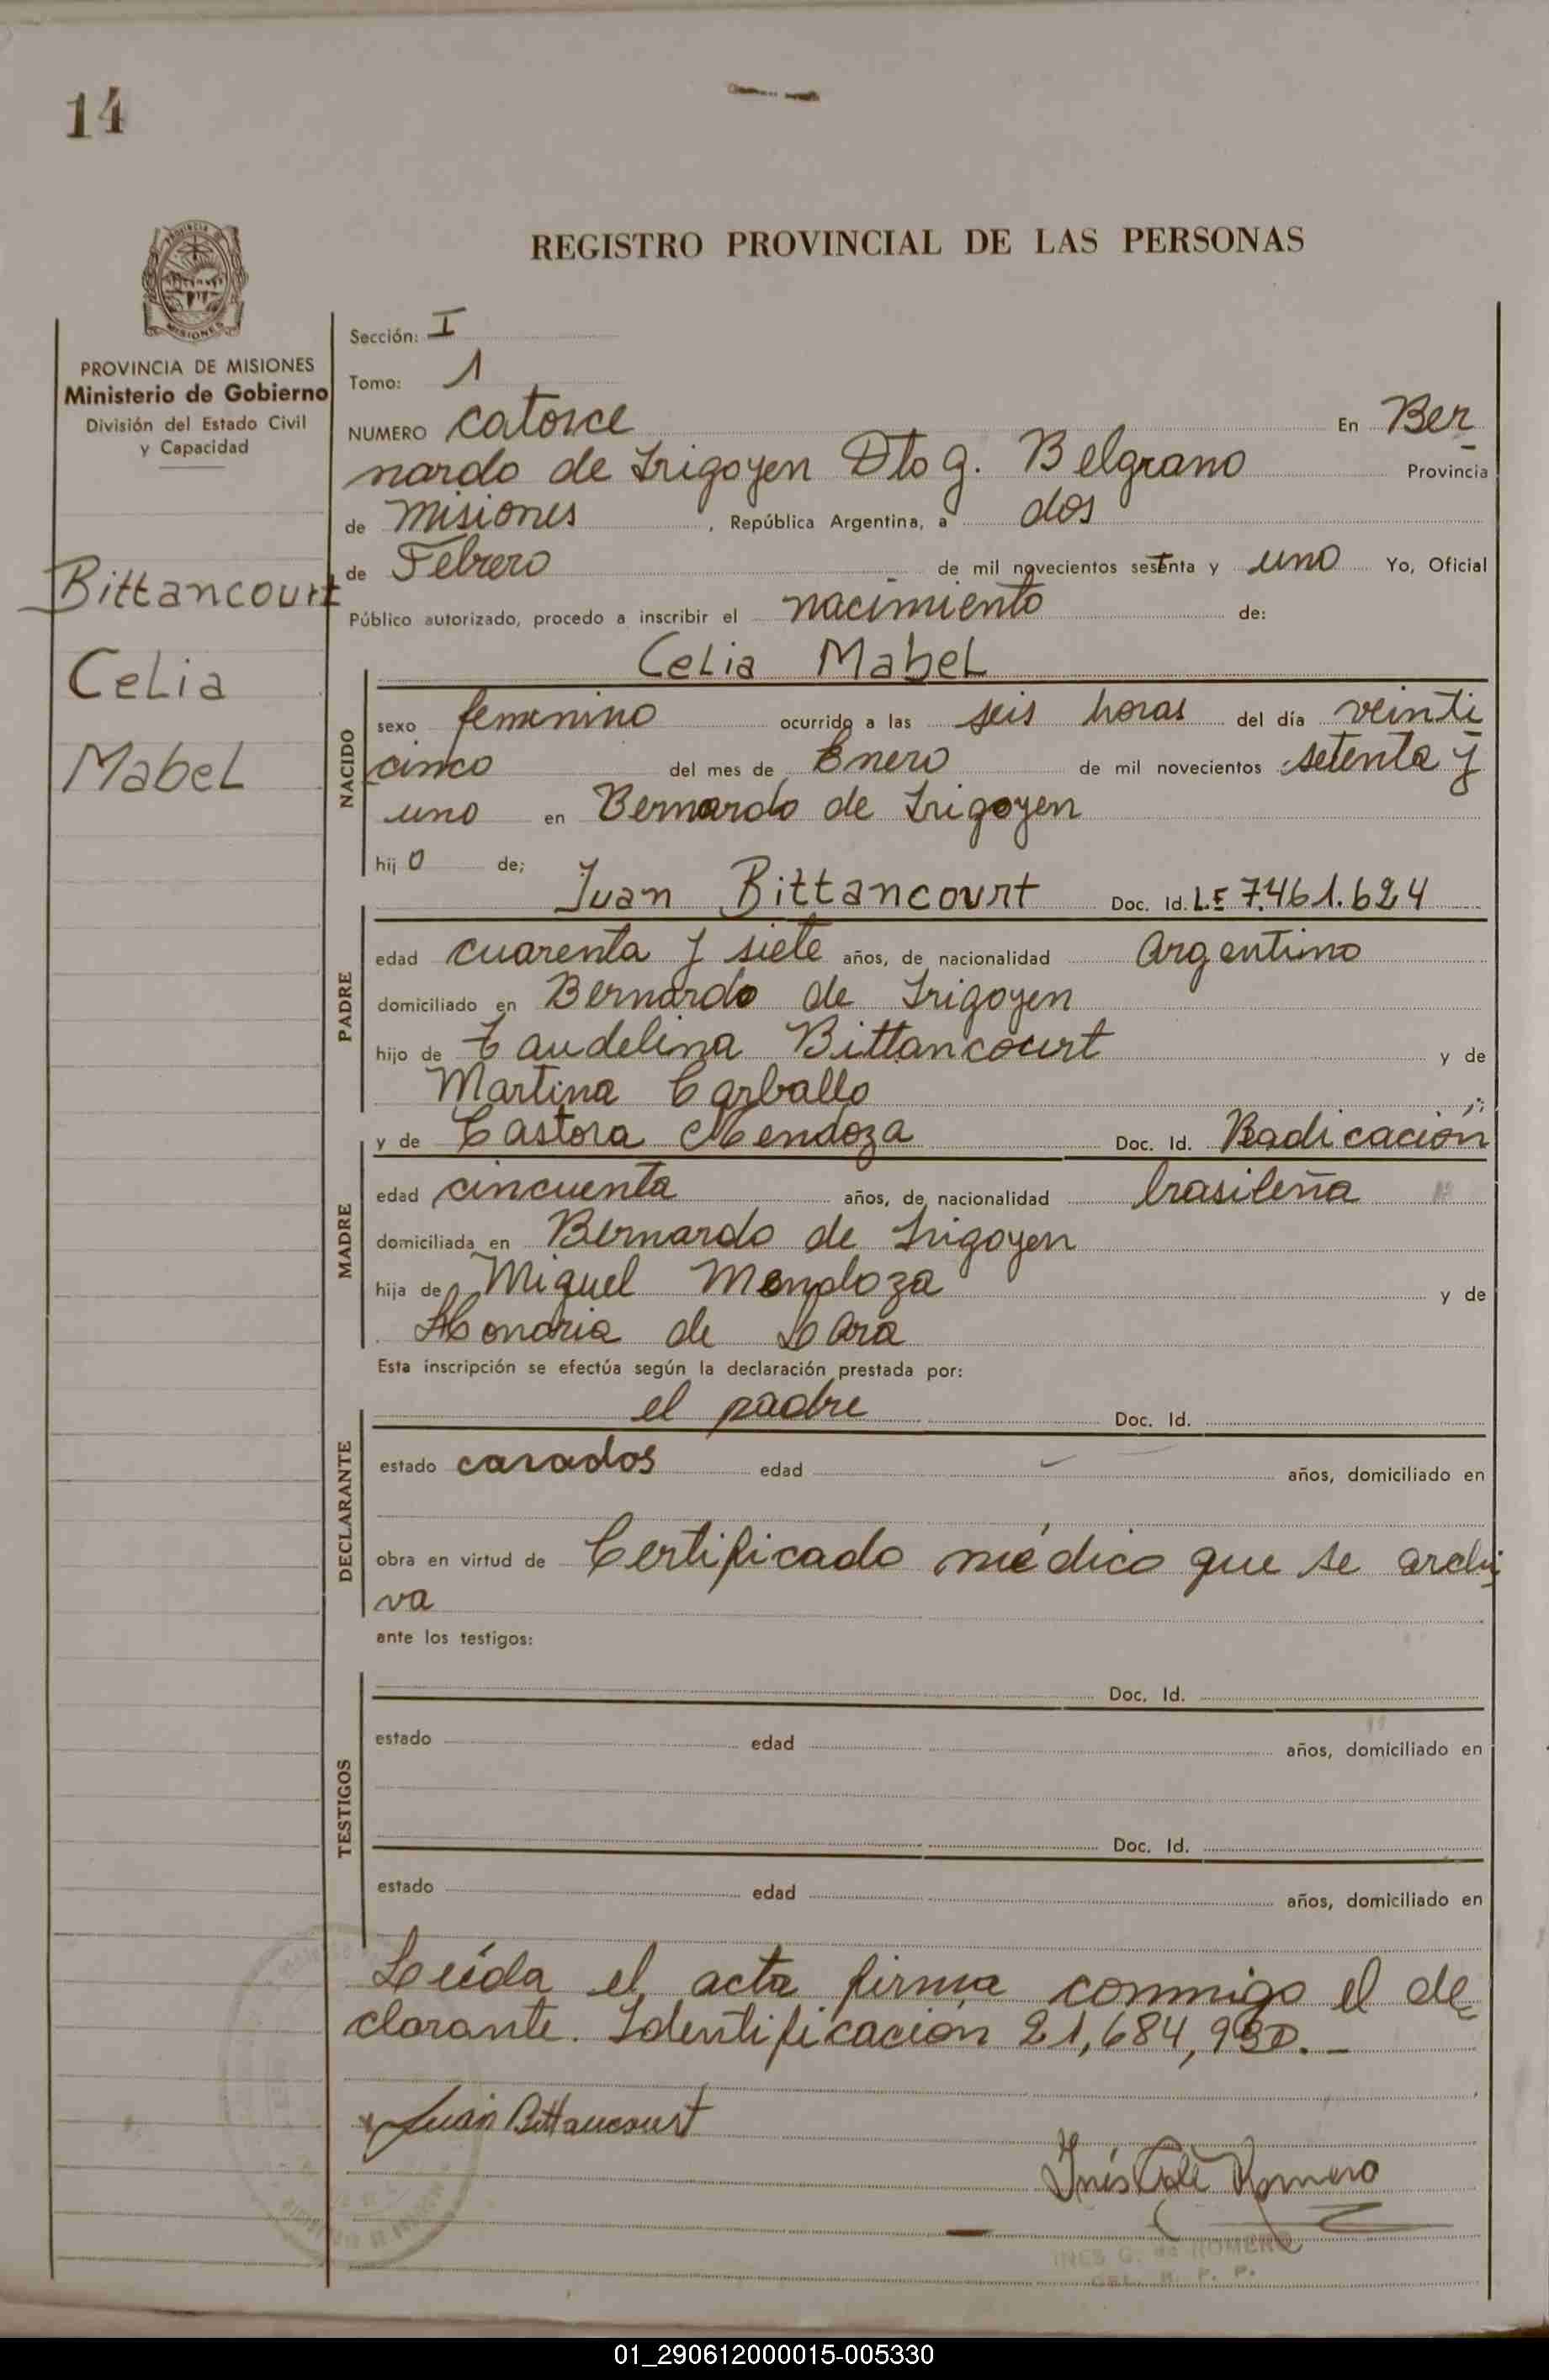 14
REGISTRO PROVINCIAL DE LAS PERSONAS
PROVINCIA DE MISIONES
Ministerio de Gobierno
División del Estado Civil
y Capacidad
Bittancourt
Celia
Mabel
Sección: I
Tomo: 1
NUMERO catorce En Ber
nardo de Irigoyen Dto G. Belgrano Provincia
de Misiones, República Argentina, a dos
de Febrero de mil novecientos setenta y uno Yo, Oficial
Público autorizado, procedo a inscribir el nacimiento de:
Celia Mabel
NACIDO
sexo femenino ocurrido a las seis horas del día veinti
cinco del mes de Enero de mil novecientos setenta y
uno en Bernardo de Irigoyen
hijo de;
Juan Bittancourt Doc. Id. L.E 7.461.624
PADRE
edad cuarenta y siete años, de nacionalidad Argentino
domiciliado en Bernardo de Irigoyen
hijo de Caudelina Bittancourt y de
Martina Carballo
y de Castora Mendoza Doc. Id. Radicación
MADRE
edad cincuenta años, de nacionalidad brasileña
domiciliada en Bernardo de Irigoyen
hija de Miguel Mendoza y de
Honoria de Lara
Esta inscripción se efectúa según la declaración prestada por:
el padre Doc. Id.
DECLARANTE
estado casados edad años, domiciliado en
obra en virtud de Certificado médico que se archi
va
ante los testigos:
Doc. Id.
TESTIGOS
estado edad años, domiciliado en
Doc. Id.
estado edad años, domiciliado en
Leída el acta firma conmigo el de
clarante. Identificación 21,684,930.-
Juan Bittancourt
Inés Romero
INES G. de ROMERO
01_290612000015-005330